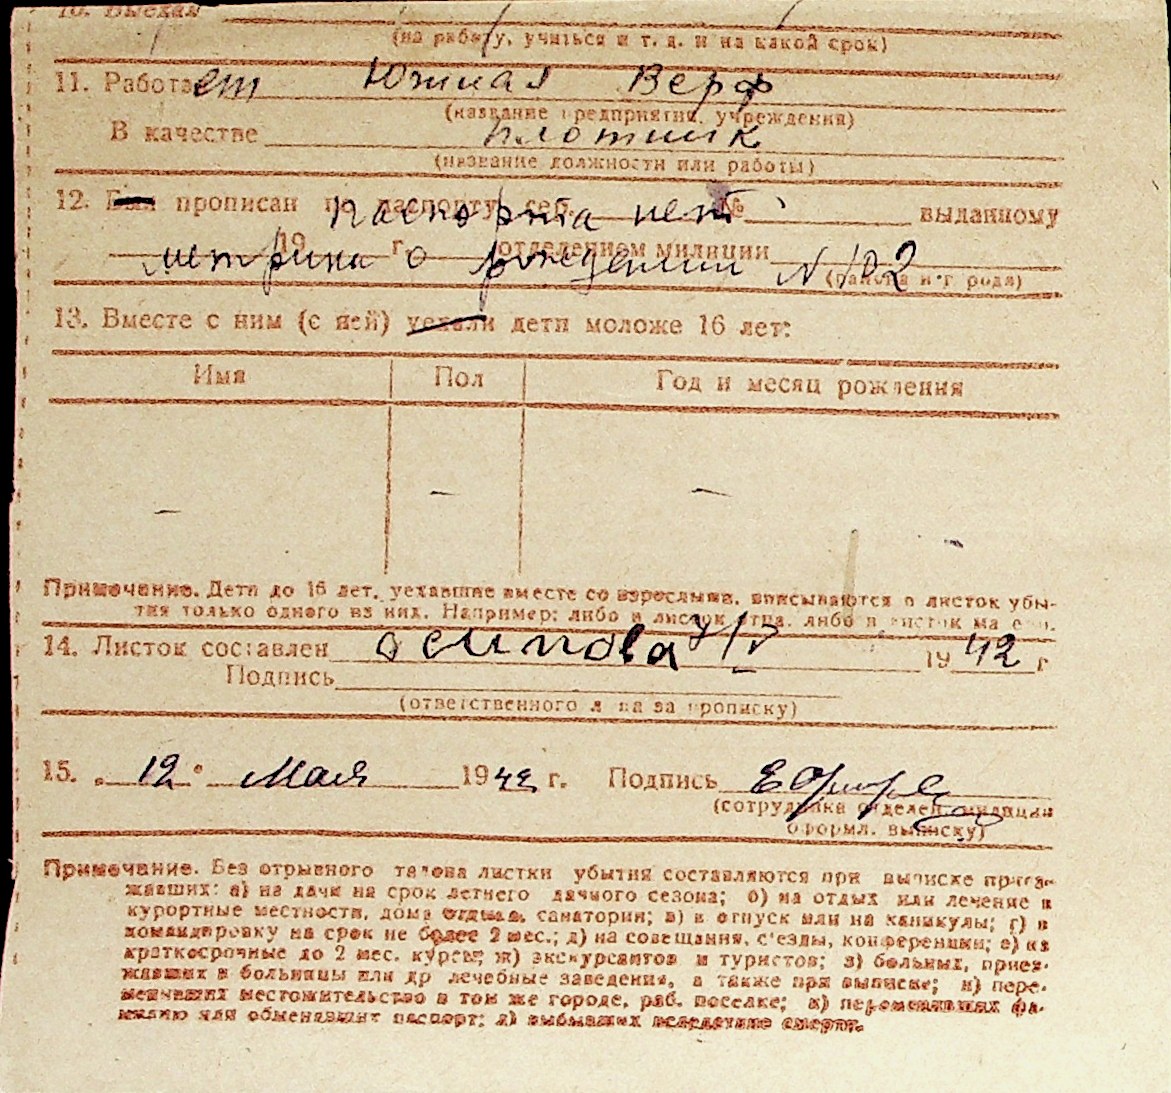 10. Выехал
(на работу, учиться и т. д. и на какой срок)
11. Работает Южная Верф
(название предприятия, учреждения)
В качестве плотник
(название должности или работы)
12. Был прописан по паспорту сер. № выданному
паспорта нет
19 г. отделением милиции
метрика о рождении N 102
(района и г рода)
13. Вместе с ним (с ней) уехали дети моложе 16 лет:
Имя Пол Год и месяц рождения
— — —
Примечание. Дети до 16 лет, уехавшие вместе со взрослыми, вписываются в листок убы-
тия только одного из них. Например: либо в листок отца, либо в листок матери.
14. Листок составлен Осипова 7/V 1942 г
Подпись
(ответственного лица за прописку)
15. „12" Мая 1942 г. Подпись
(сотрудника отделен. милиции
оформл. выписку)
Примечание. Без отрывного талона листки убытия составляются при выписке приез-
жавших: а) на дачи на срок летнего дачного сезона; б) на отдых или лечение в
курортные местности, дома отдыха, санатории; в) в отпуск или на каникулы; г) в
командировку на срок не более 2 мес.; д) на совещания, с'езды, конференции; е) на
краткосрочные до 2 мес. курсы; ж) экскурсантов и туристов; з) больных, приез-
жавших в больницы или др лечебные заведения, а также при выписке; и) пере-
менивших местожительство в том же городе, раб. поселке; к) переменивших фа-
милию или обменявших паспорт; л) выбывших вследствие смерти.